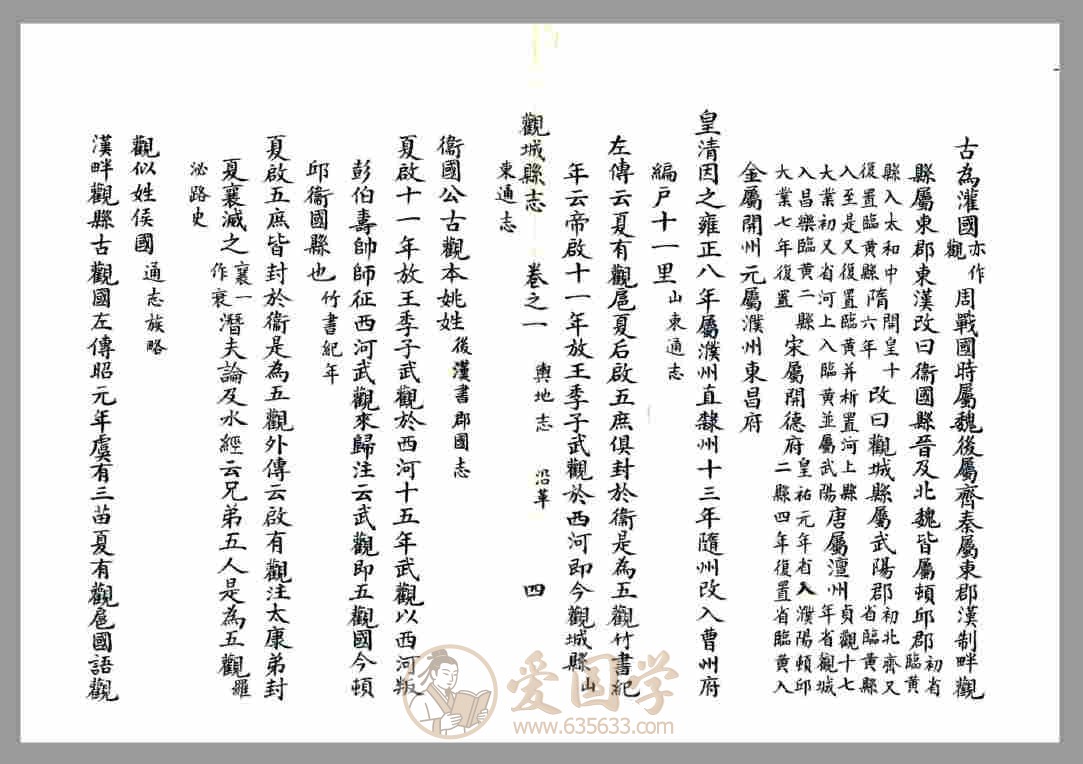 古為灌國亦作觀周戰國時屬魏後屬齊秦屬東郡漢制畔觀
縣屬東郡東漢改曰衛國縣晉及北魏皆屬頓邱郡初省臨黃
縣入太和中復置臨黃縣隋開皇十六年改曰觀城縣屬武陽郡初北齊又省臨黃縣
入至是又復置臨黃并析置河上縣大業初又省河上入臨黃並屬武陽唐屬澶州貞觀十七年省觀城
入昌樂臨黃二縣大業七年復置宋屬開德府皇祐元年省入濮陽頓邱二縣四年復置省臨黃入
金屬開州元屬濮州東昌府
皇清因之雍正八年屬濮州直隸州十三年隨州改入曹州府
編戶十一里山東通志
左傳云夏有觀扈夏后啟五庶俱封於衛是為五觀竹書紀
年云帝啟十一年放王季子武觀於西河即今觀城縣山
觀城縣志 卷之一 輿地志 沿革 四
東通志
衛國公古觀本姚姓後漢書郡國志
夏啟十一年放王季子武觀於西河十五年武觀以西河叛
彭伯壽帥師征西河武觀來歸注云武觀即五觀國今頓
邱衛國縣也竹書紀年
夏啟五庶皆封於衛是為五觀外傳云啟有觀注太康弟封
夏襄滅之襄一作衰潛夫論及水經云兄弟五人是為五觀羅
泌路史
觀似姓侯國通志族略
漢畔觀縣古觀國左傳昭元年虞有三苗夏有觀扈國語觀
爱国学
www.635633.com